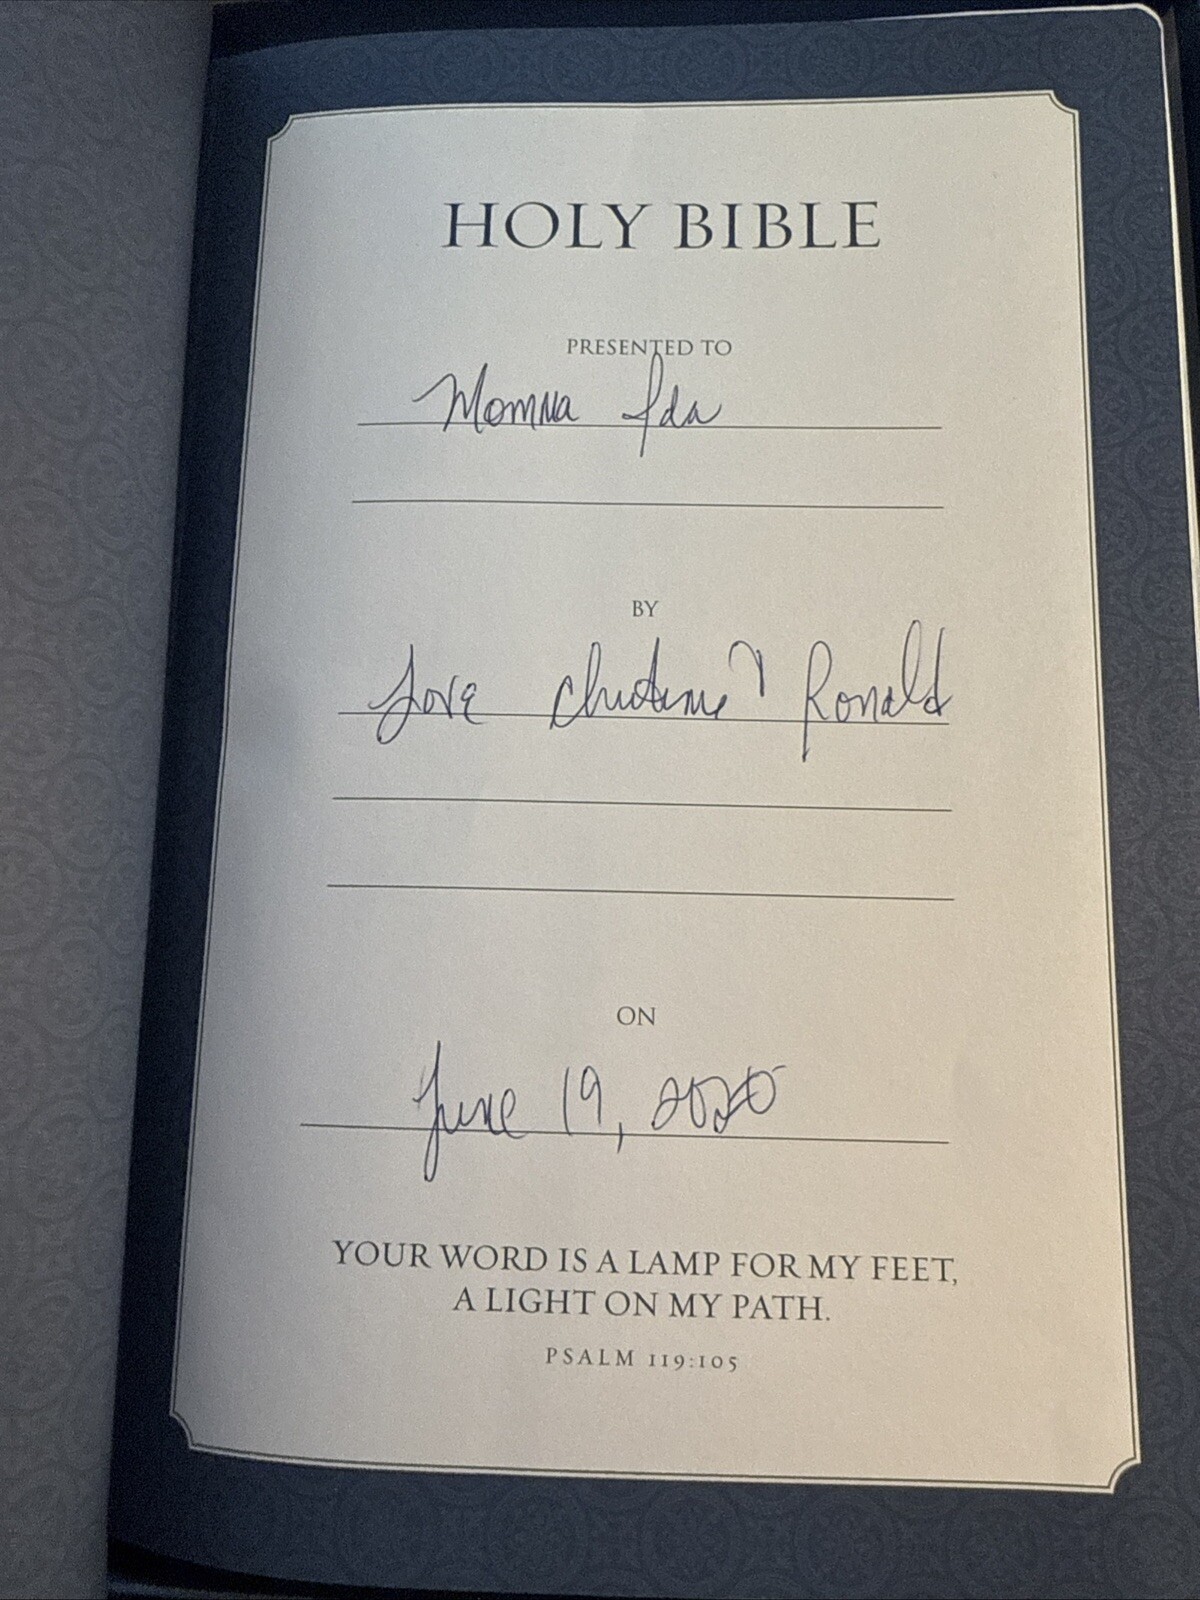 HOLY BIBLE
PRESENTED TO
Momma Ida
BY
Love Christine & Ronald
ON
June 19, 2020
YOUR WORD IS A LAMP FOR MY FEET,
A LIGHT ON MY PATH.
PSALM 119:105